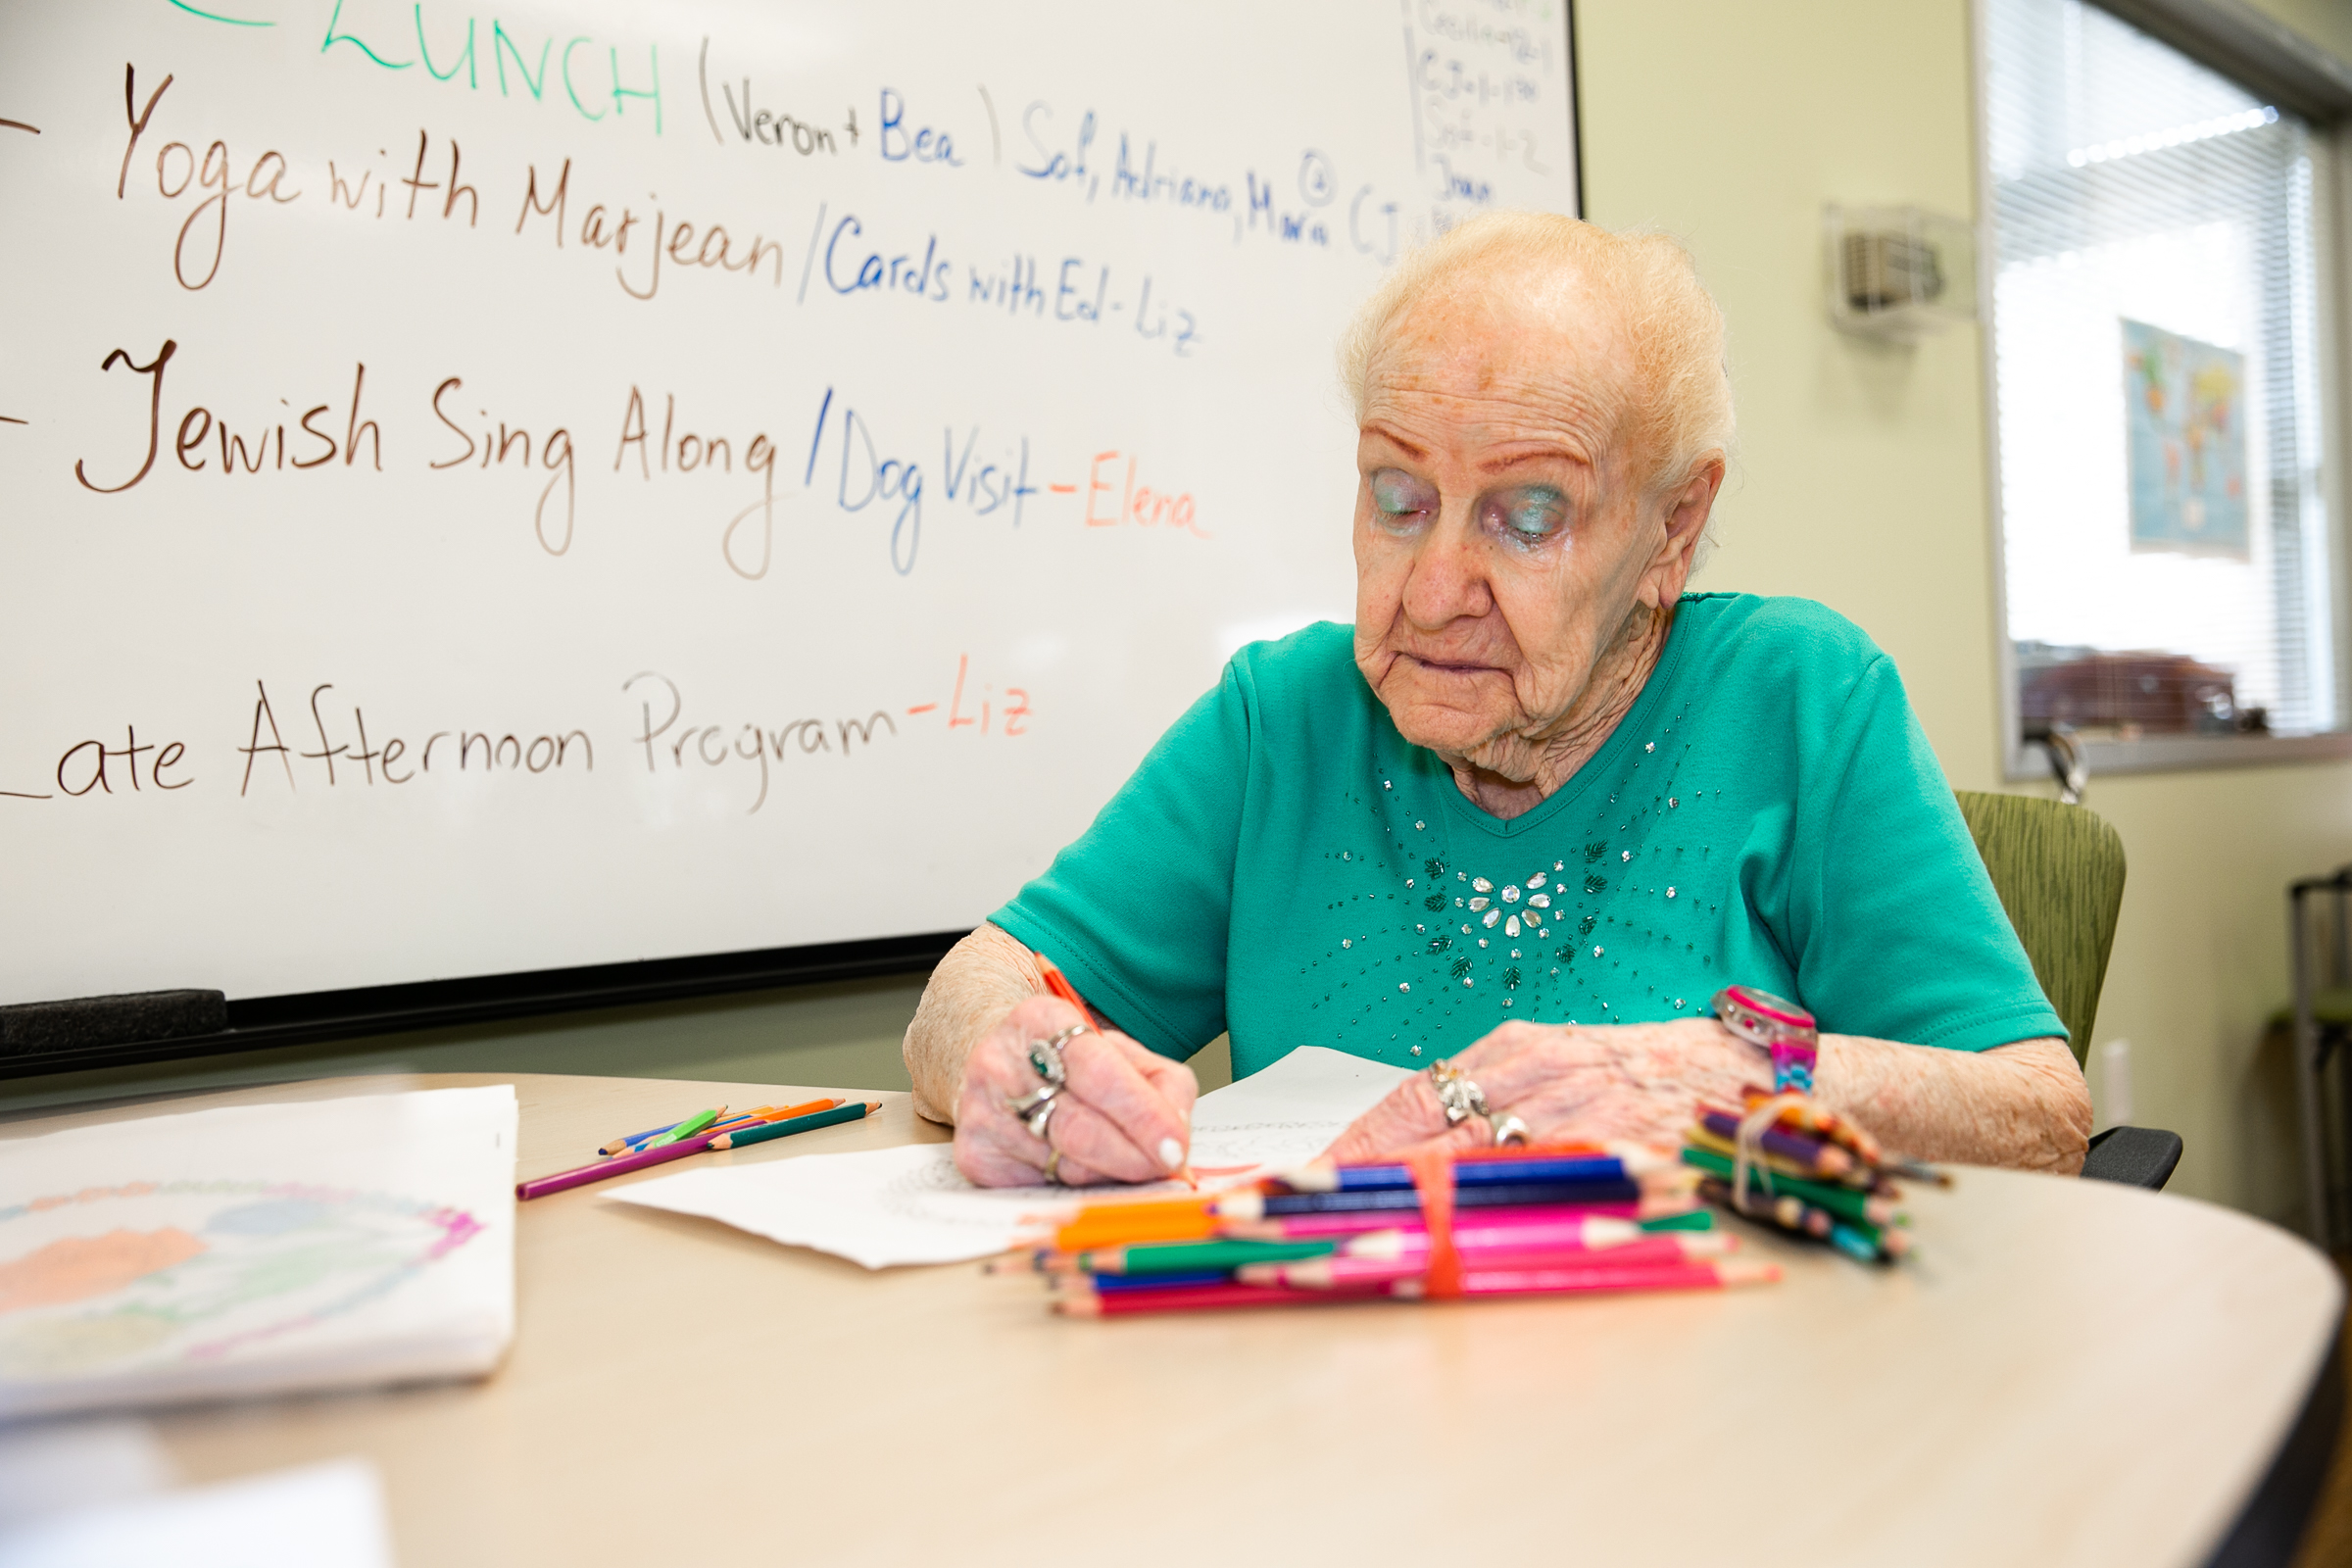 LUNCH (Veron + Bea) Sof, Adriana, Maria CJ
- Yoga with Marjean / Cards with Ed - Liz
- Jewish Sing Along / Dog Visit - Elena
Late Afternoon Program - Liz
Joan